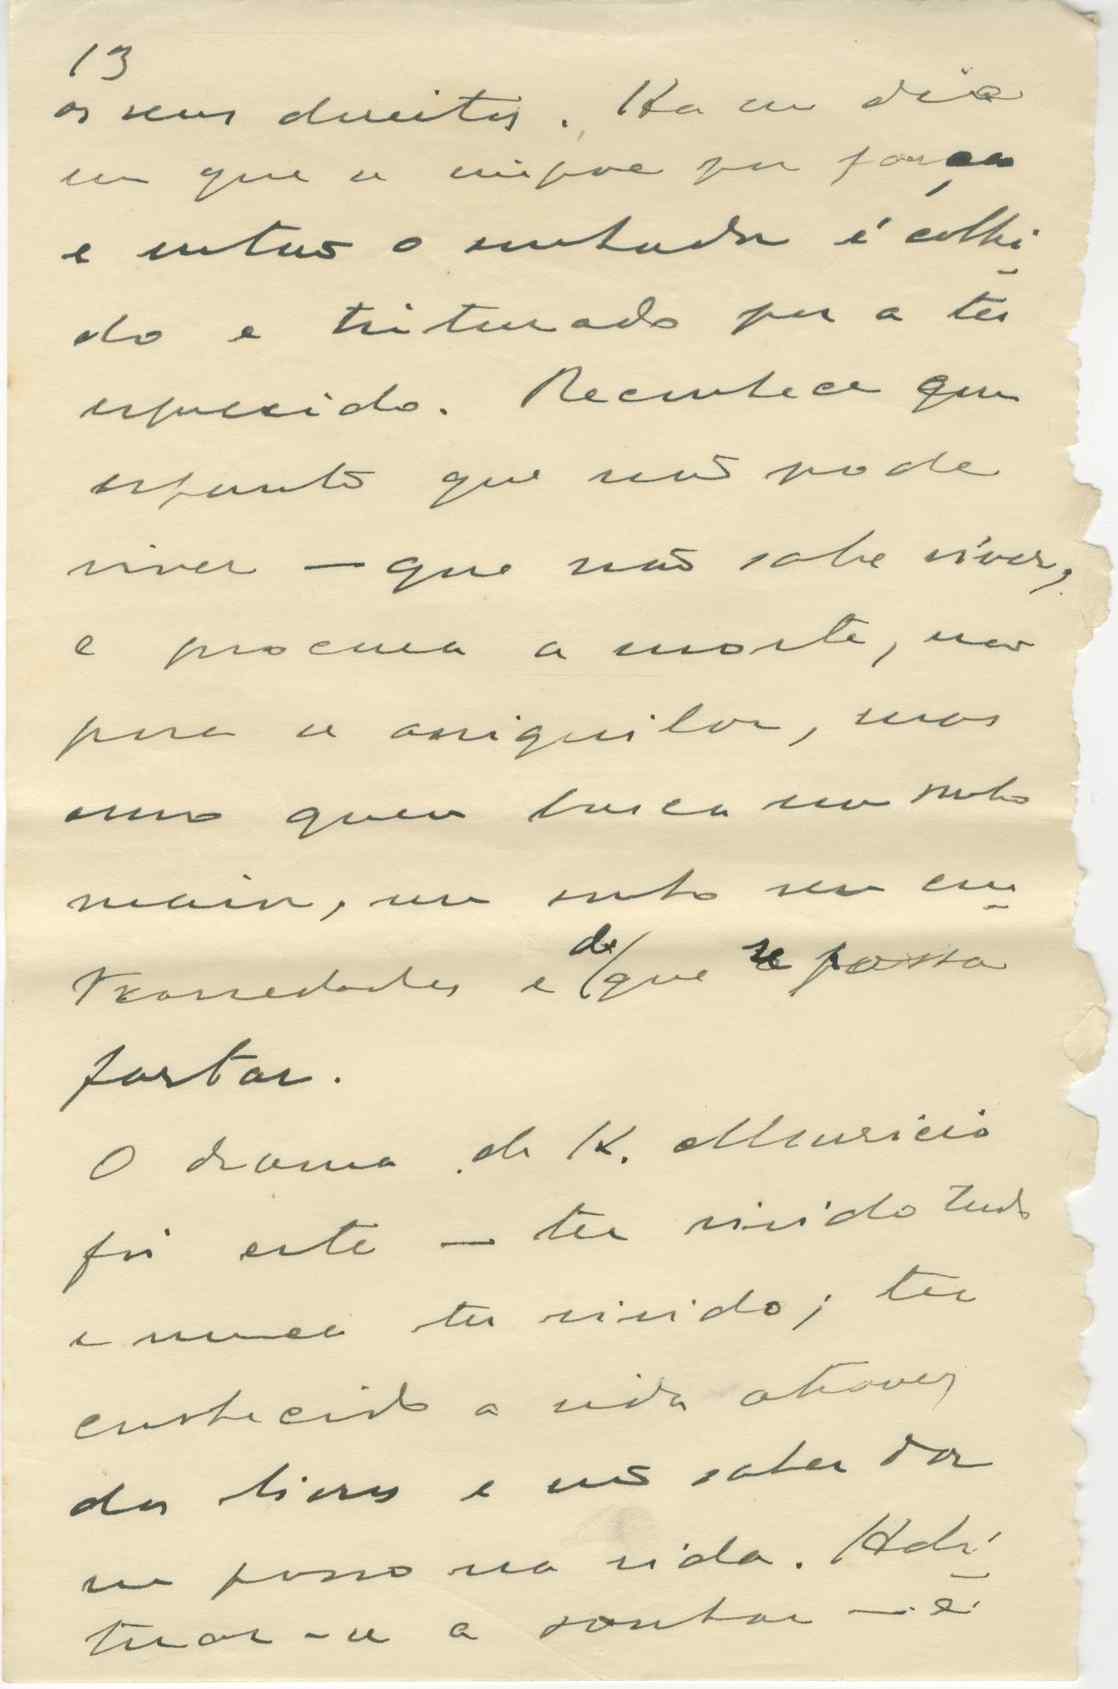 13
os seus direitos. Ha um dia
em que se impoe por força
e entao o sonhador é colhi
do e triturado por a ter
esquecido. Reconhece com
espanto que não pode
viver — que não sabe viver,
e procura a morte, não
para se aniquilar, mas
como quem busca um sonho
maior, um sonho sem con
trariedades e de que se possa
fartar.
O drama de K. Mauricio
foi este — ter vivido tudo
e nunca ter vivido; ter
conhecido a vida atravez
dos livros e não saber dar
um passo na vida. Habi
tuar-se a sonhar — é